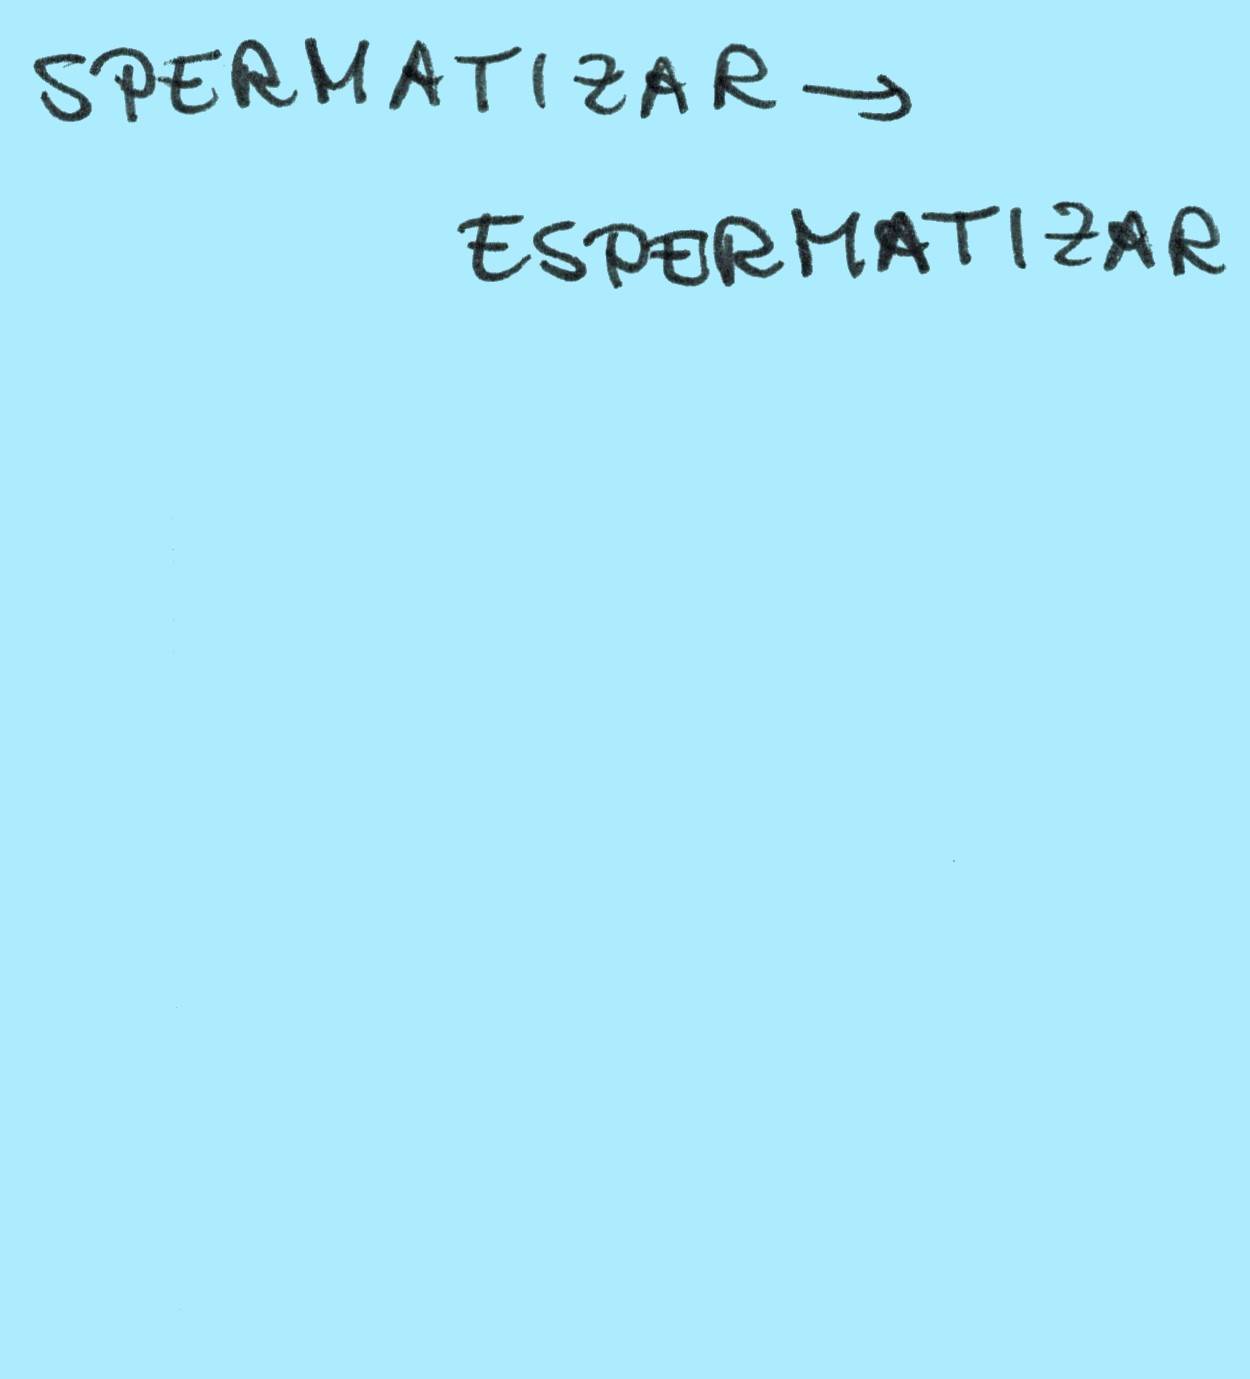 SPERMATIZAR →
ESPERMATIZAR